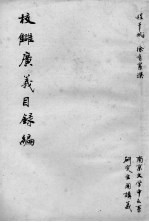 程千帆 徐有富撰
校雠廣義目録編
南京大學中文系
研究生用講義